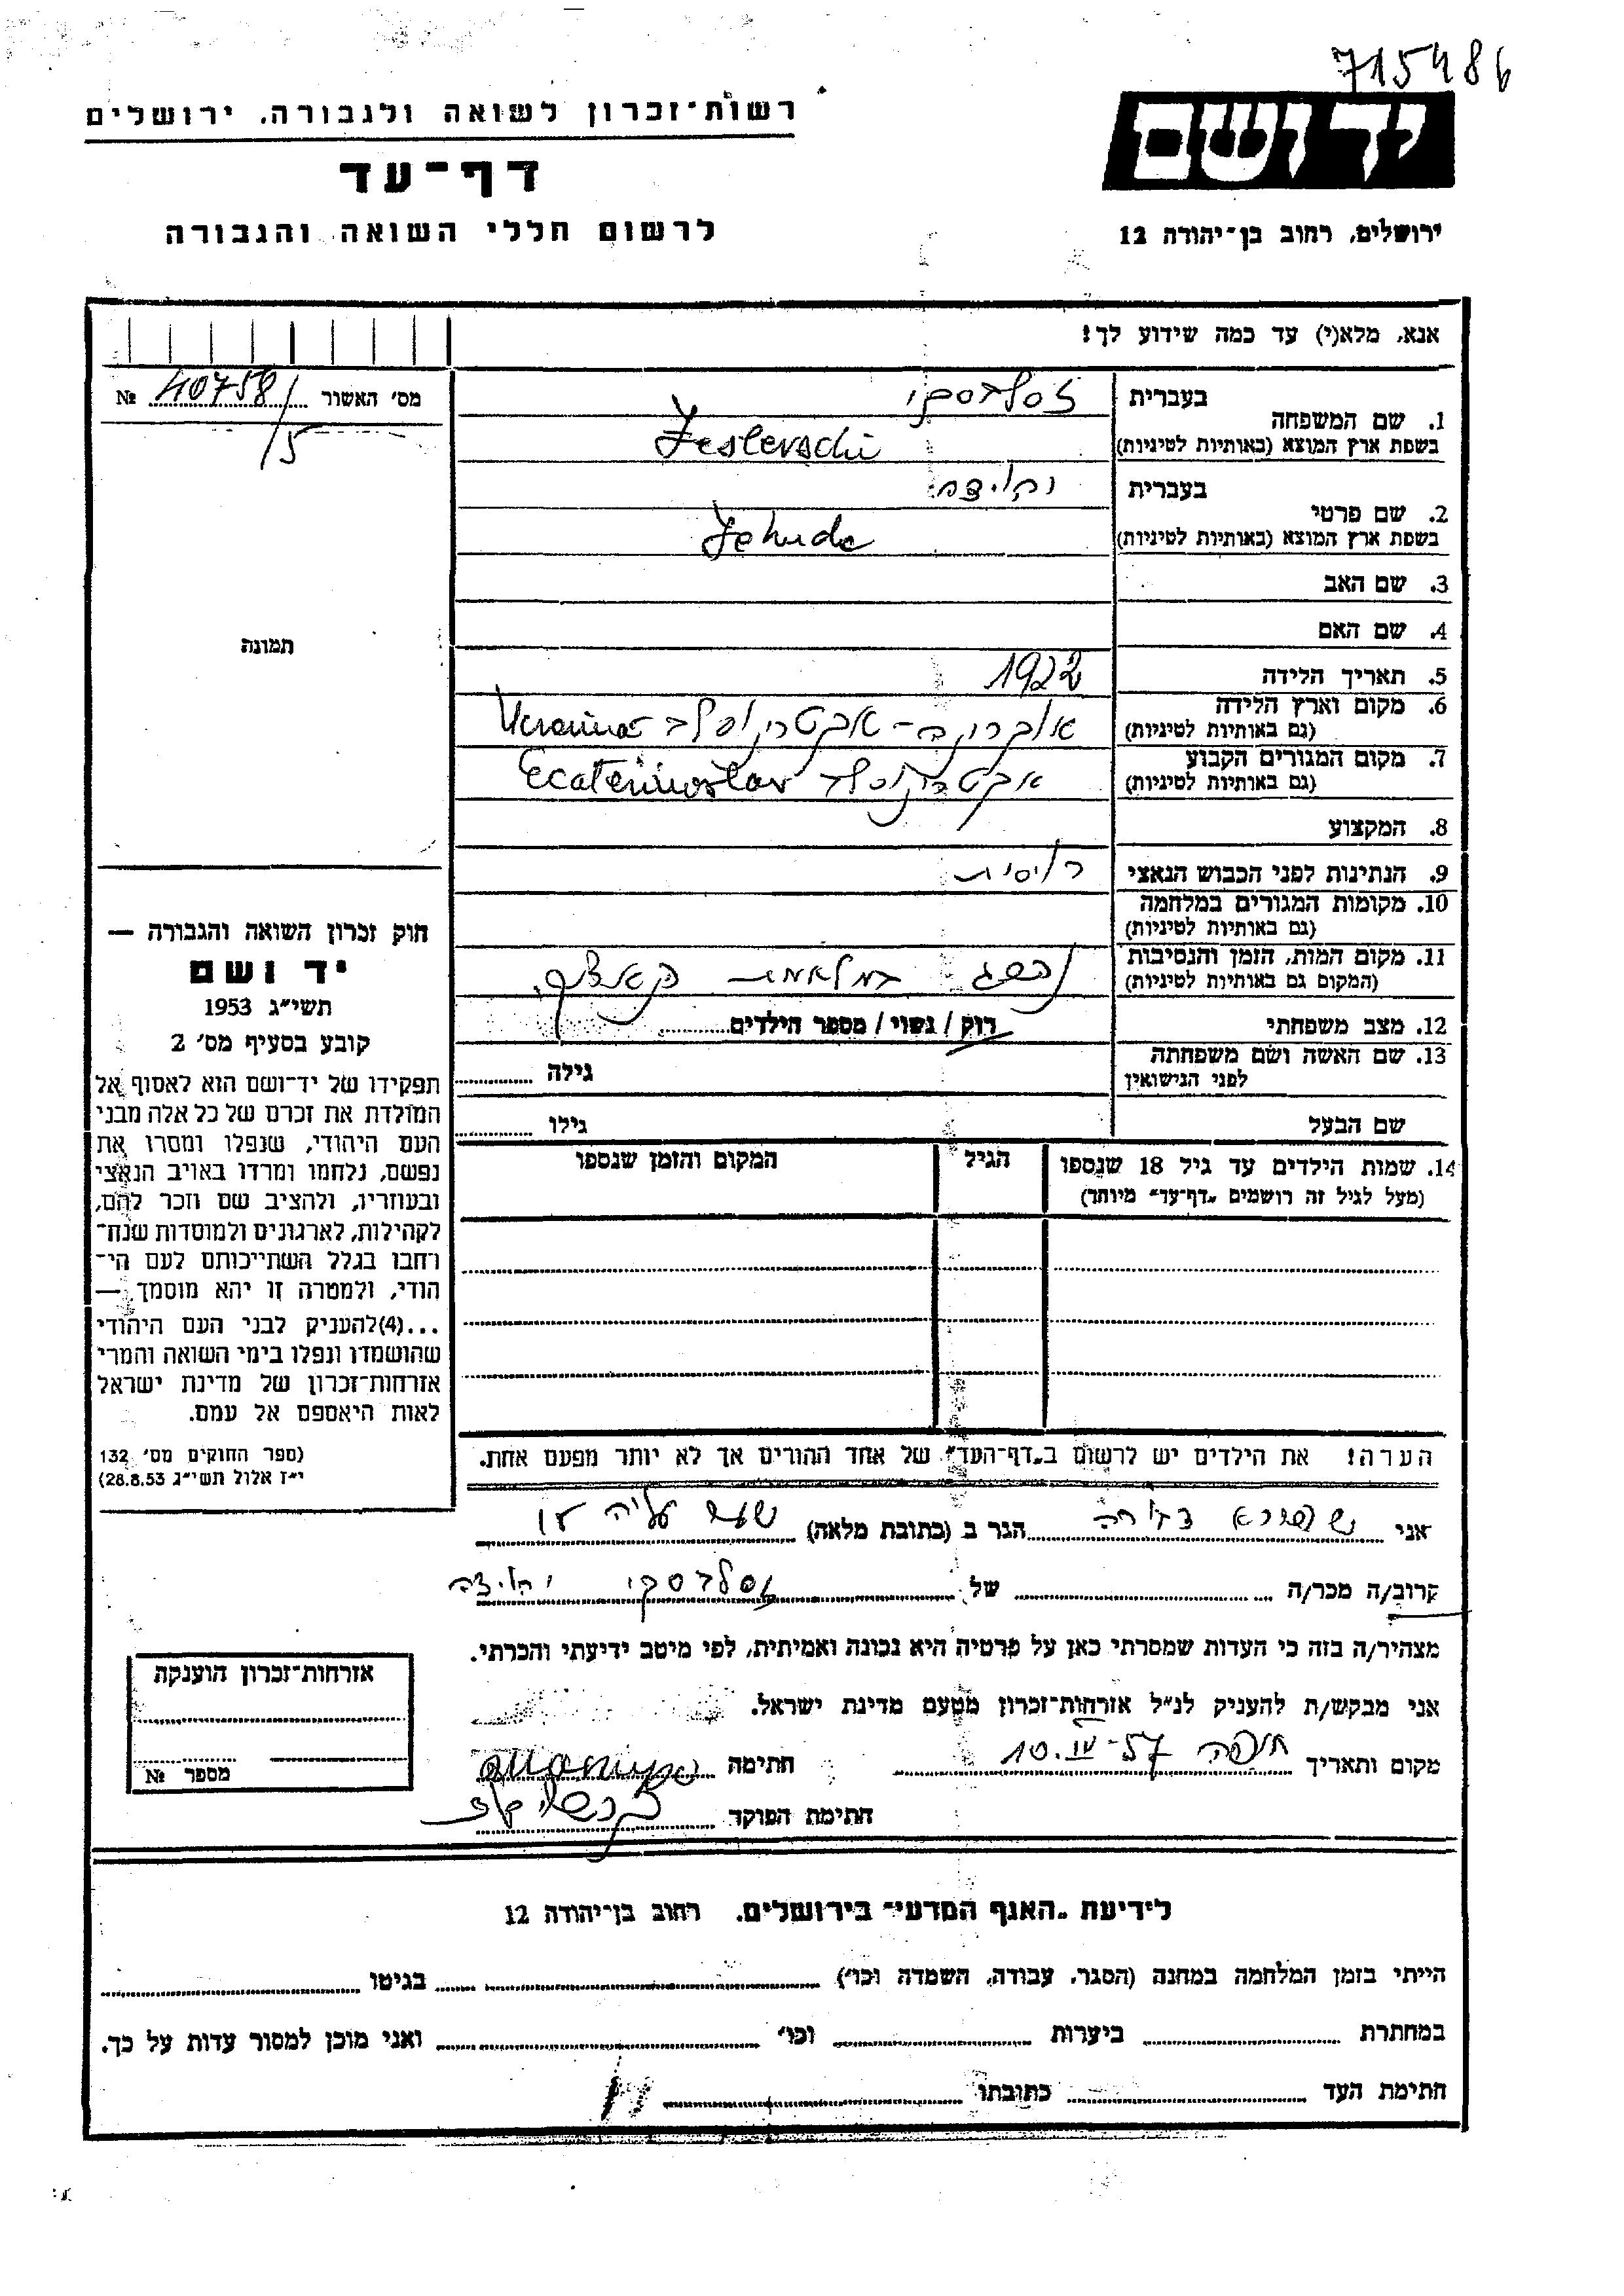 715486
רשות־זכרון לשואה ולגבורה, ירושלים
דף־עד
לרשום חללי השואה והגבורה
יד ושם
ירושלים, רחוב בן־יהודה 12
אנא, מלא(י) עד כמה שידוע לך!
מס׳ האשור 40758/5 №
תמונה
1. שם המשפחה
בעברית זסלבסקי
בשפת ארץ המוצא (באותיות לטיניות) Zeslevschi
2. שם פרטי
בעברית יהודה
בשפת ארץ המוצא (באותיות לטיניות) Jehuda
3. שם האב
4. שם האם
5. תאריך הלידה 1922
6. מקום וארץ הלידה
(גם באותיות לטיניות) Ucraina
7. מקום המגורים הקבוע
(גם באותיות לטיניות) Ecaterinoslav
8. המקצוע
9. הנתינות לפני הכבוש הנאצי רוסית
10. מקומות המגורים במלחמה
(גם באותיות לטיניות)
11. מקום המות, הזמן והנסיבות נהרג במלחמה
(המקום גם באותיות לטיניות)
12. מצב משפחתי רוק / נשוי / מספר הילדים
13. שם האשה ושם משפחתה
לפני הנישואין גילה
שם הבעל גילו
14. שמות הילדים עד גיל 18 שנספו הגיל המקום והזמן שנספו
(מעל לגיל זה רושמים „דף־עד״ מיוחד)
הערה! את הילדים יש לרשום ב„דף־העד״ של אחד ההורים אך לא יותר מפעם אחת.
חוק זכרון השואה והגבורה —
יד ושם
תשי״ג 1953
קובע בסעיף מס׳ 2
תפקידו של יד־ושם הוא לאסוף אל
המולדת את זכרם של כל אלה מבני
העם היהודי, שנפלו ומסרו את
נפשם, נלחמו ומרדו באויב הנאצי
ובעוזריו, ולהציב שם וזכר להם,
לקהילות, לארגונים ולמוסדות שנח־
רחבו בגלל השתייכותם לעם הי־
הודי, ולמטרה זו יהא מוסמך —
...(4)להעניק לבני העם היהודי
שהושמדו ונפלו בימי השואה והמרי
אזרחות־זכרון של מדינת ישראל
לאות היאספם אל עמם.
(ספר החוקים מס׳ 132
י״ז אלול תשי״ג 28.8.53)
אני הגר ב (כתובת מלאה) שער עליה
קרוב/ה מכר/ה של זסלבסקי יהודה
מצהיר/ה בזה כי העדות שמסרתי כאן על פרטיה היא נכונה ואמיתית, לפי מיטב ידיעתי והכרתי.
אני מבקש/ת להעניק לנ״ל אזרחות־זכרון מטעם מדינת ישראל.
מקום ותאריך חיפה 10.IV-57 חתימה
חתימת הפוקד
אזרחות־זכרון הוענקה
מספר №
לידיעת „האגף המדעי״ בירושלים, רחוב בן־יהודה 12
הייתי בזמן המלחמה במחנה (הסגר, עבודה, השמדה וכו׳) בגיטו
במחתרת ביערות וכו׳ ואני מוכן למסור עדות על כך.
חתימת העד כתובתו